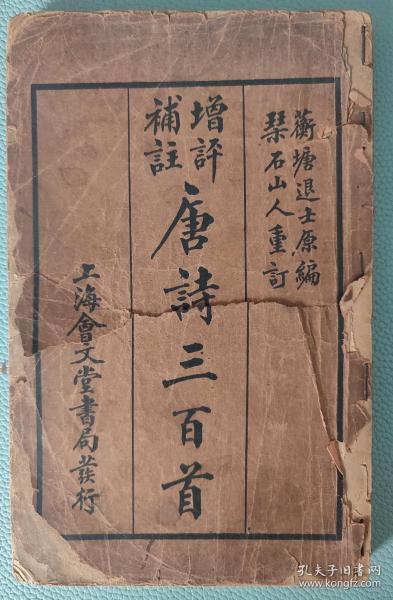 蘅塘退士原編
琹石山人重訂
增評
補註
唐詩三百首
上海會文堂書局發行
孔夫子旧书网
www.kongfz.com